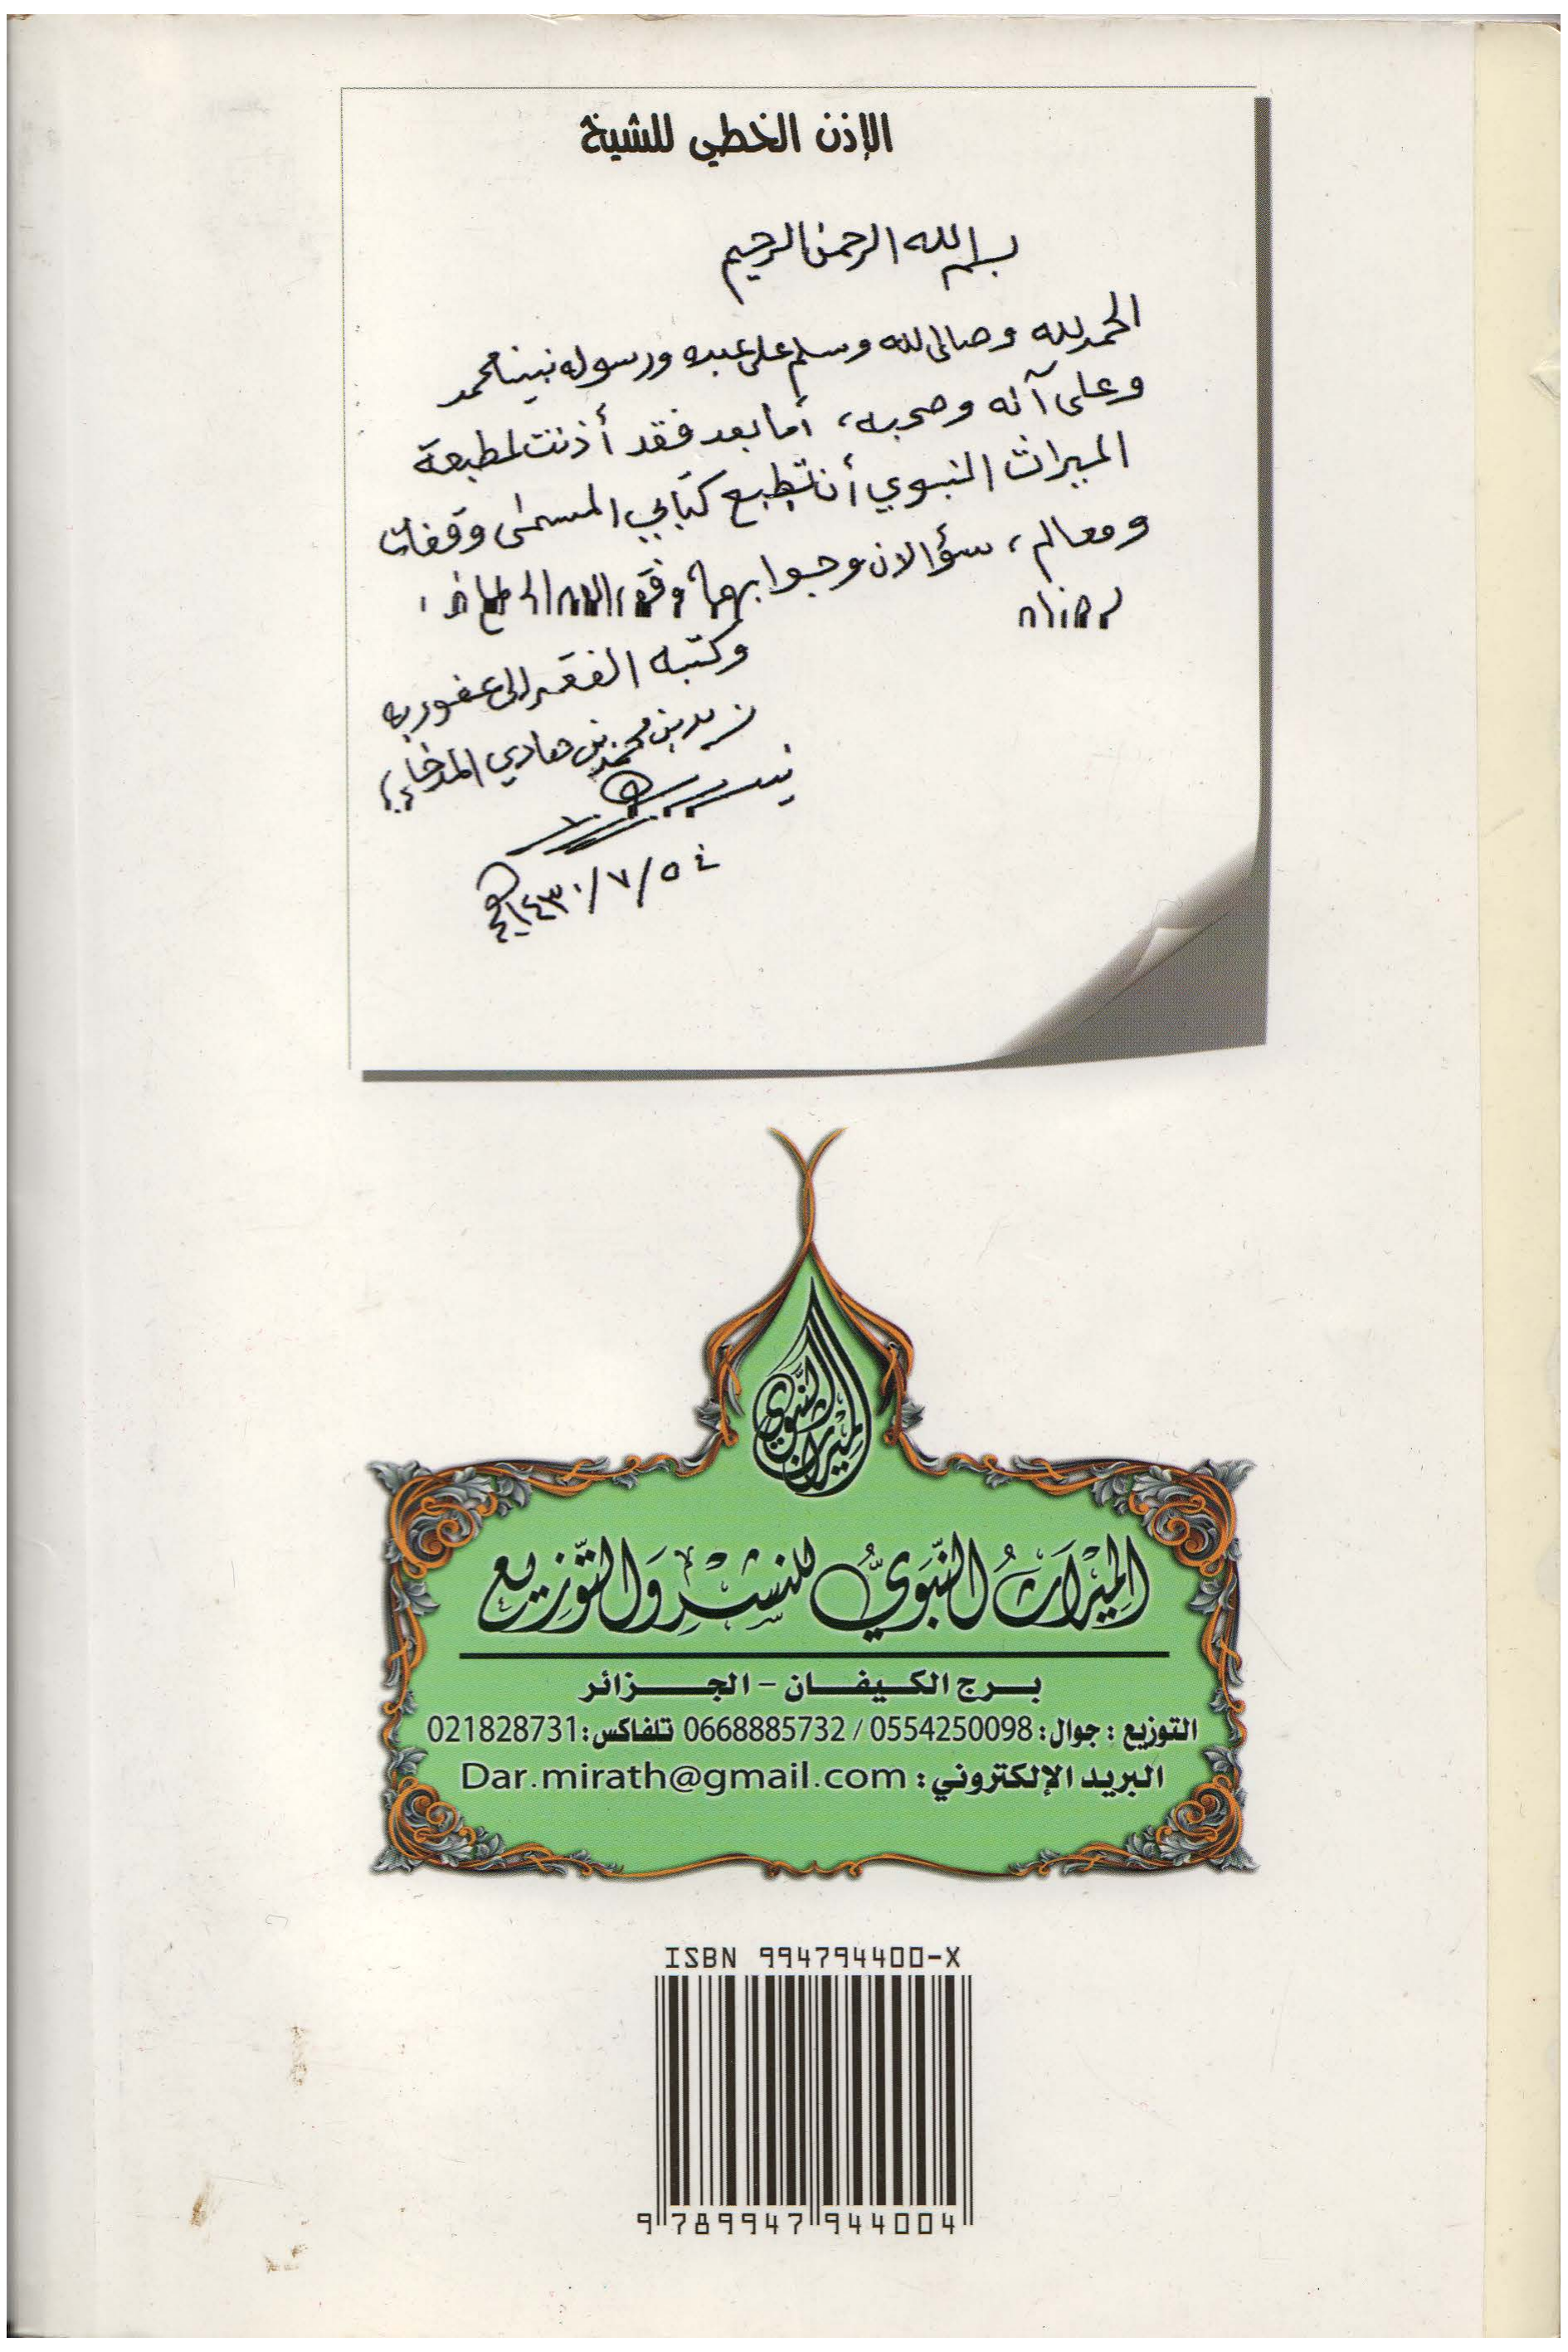 الإذن الخطي للشيخ
بسم الله الرحمن الرحيم
الحمد لله وصلى الله وسلم على عبده ورسوله نبينا محمد
وعلى آله وصحبه، أما بعد فقد أذنت لمطبعة
الميراث النبوي أن تطبع كتابي المسمى وقفات
ومعالم، سؤالان وجوابهما وفق الله الجميع
لرضاه
وكتبه الفقير إلى عفو ربه
زيد بن محمد بن هادي المدخلي
١٤٣٠/٧/٥هـ
الميراث النبوي
الْمِيْرَاثُ النَّبَوِيُّ لِلنَّشْرِ وَالتَّوْزِيع
برج الكيفان - الجزائر
التوزيع : جوال: 0554250098 / 0668885732 تلفاكس: 021828731
البريد الإلكتروني: Dar.mirath@gmail.com
ISBN 994794400-X
9 789947 944004